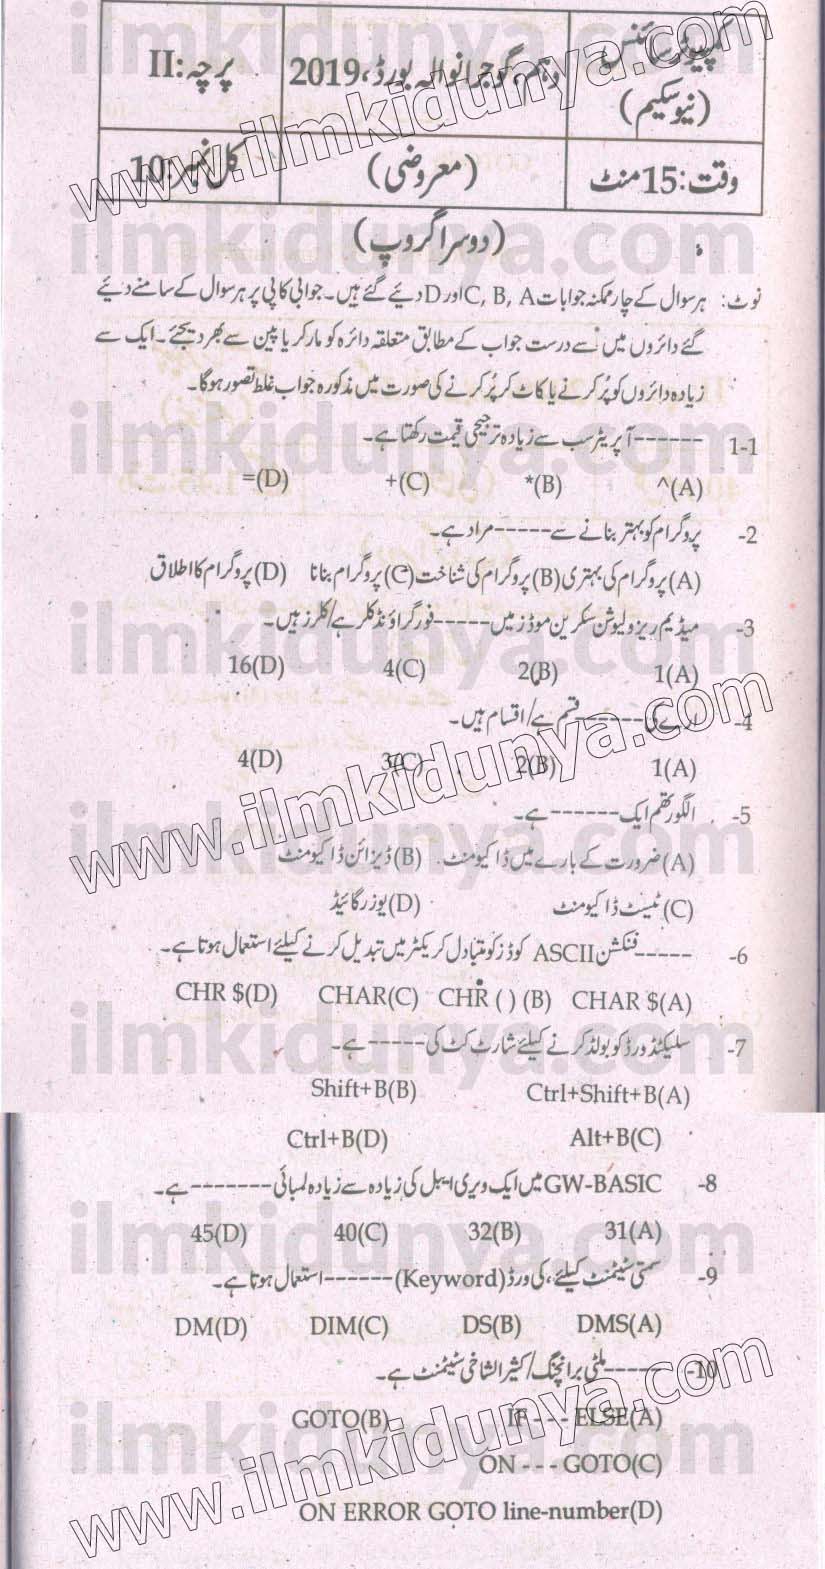 کمپیوٹر سائنس (نیو سکیم) دہم، گوجرانوالہ بورڈ، 2019 پرچہ: II
وقت: 15 منٹ (معروضی) کل نمبر: 10
(دوسرا گروپ)
نوٹ: ہر سوال کے چار ممکنہ جوابات C, B, A اور D دیئے گئے ہیں۔ جوابی کاپی پر ہر سوال کے سامنے دیئے
گئے دائروں میں سے درست جواب کے مطابق متعلقہ دائرہ کو مارکر یا پین سے بھر دیجئے۔ ایک سے
زیادہ دائروں کو پُر کرنے یا کاٹ کر پُر کرنے کی صورت میں مذکورہ جواب غلط تصور ہوگا۔
1-1 ------ آپریٹر سب سے زیادہ ترجیحی قیمت رکھتا ہے۔
(A) ^ (B) * (C) + (D) =
2- پروگرام کو بہتر بنانے سے ----- مراد ہے۔
(A) پروگرام کی بہتری (B) پروگرام کی شناخت (C) پروگرام بنانا (D) پروگرام کا اطلاق
3- میڈیم ریزولیوشن سکرین موڈز میں ----- فورگراؤنڈ کلر ہے/ کلرز ہیں۔
(A) 1 (B) 2 (C) 4 (D) 16
4- ارے کی ------ قسم ہے/ اقسام ہیں۔
(A) 1 (B) 2 (C) 3 (D) 4
5- الگورتھم ایک ------ ہے۔
(A) ضرورت کے بارے میں ڈاکیومنٹ (B) ڈیزائن ڈاکیومنٹ
(C) ٹیسٹ ڈاکیومنٹ (D) یوزر گائیڈ
6- ----- فنکشن ASCII کوڈز کو متبادل کریکٹر میں تبدیل کرنے کیلئے استعمال ہوتا ہے۔
(A) CHAR $ (B) CHR ( ) (C) CHAR (D) CHR $
7- سلیکٹڈ ورڈ کو بولڈ کرنے کیلئے شارٹ کٹ کی ----- ہے۔
(A) Ctrl+Shift+B (B) Shift+B
(C) Alt+B (D) Ctrl+B
8- GW-BASIC میں ایک ویری ایبل کی زیادہ سے زیادہ لمبائی ------- ہے۔
(A) 31 (B) 32 (C) 40 (D) 45
9- سمتی سٹیٹمنٹ کیلئے، کی ورڈ (Keyword) ------ استعمال ہوتا ہے۔
(A) DMS (B) DS (C) DIM (D) DM
10- ------ ملٹی برانچنگ/ کثیر الشاخی سٹیٹمنٹ ہے۔
(A) IF - - - ELSE (B) GOTO
(C) ON - - - GOTO
(D) ON ERROR GOTO line-number
www.ilmkidunya.com
ilmkidunya.com